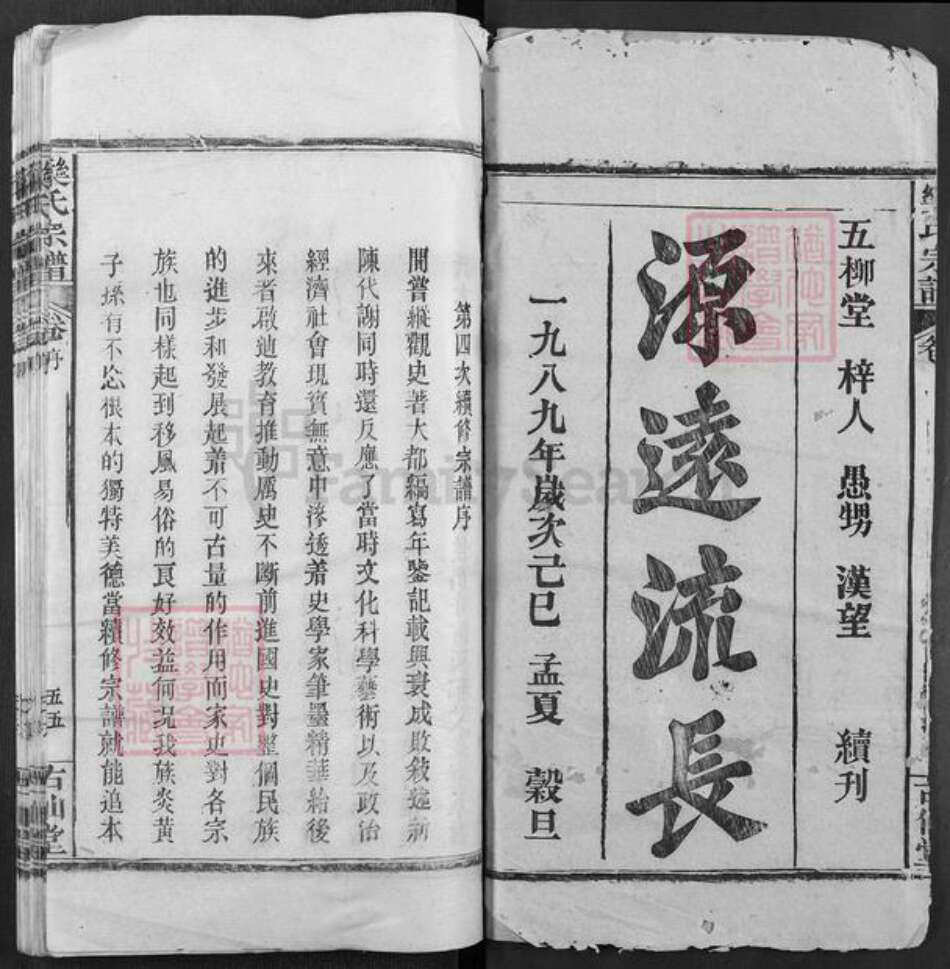 五柳堂 梓人 愚甥 漢望 續刊
源遠流長
一九八九年歲次己巳 孟夏 穀旦
第四次續修宗譜序
間嘗縱觀史著大都編寫年鑒記載興衰成敗敘述新
陳代謝同時還反應了當時文化科學藝術以及政治
經濟社會現實無意中滲透着史學家筆墨精華給後
來者啟迪教育推動厲史不斷前進國史對整個民族
的進步和發展起着不可古量的作用而家史對各宗
族也同樣起到移風易俗的良好效益何況我族炎黃
子孫有不忩根本的獨特美德當續修宗譜就能追本
氏宗譜
序
五五
FamilySearch